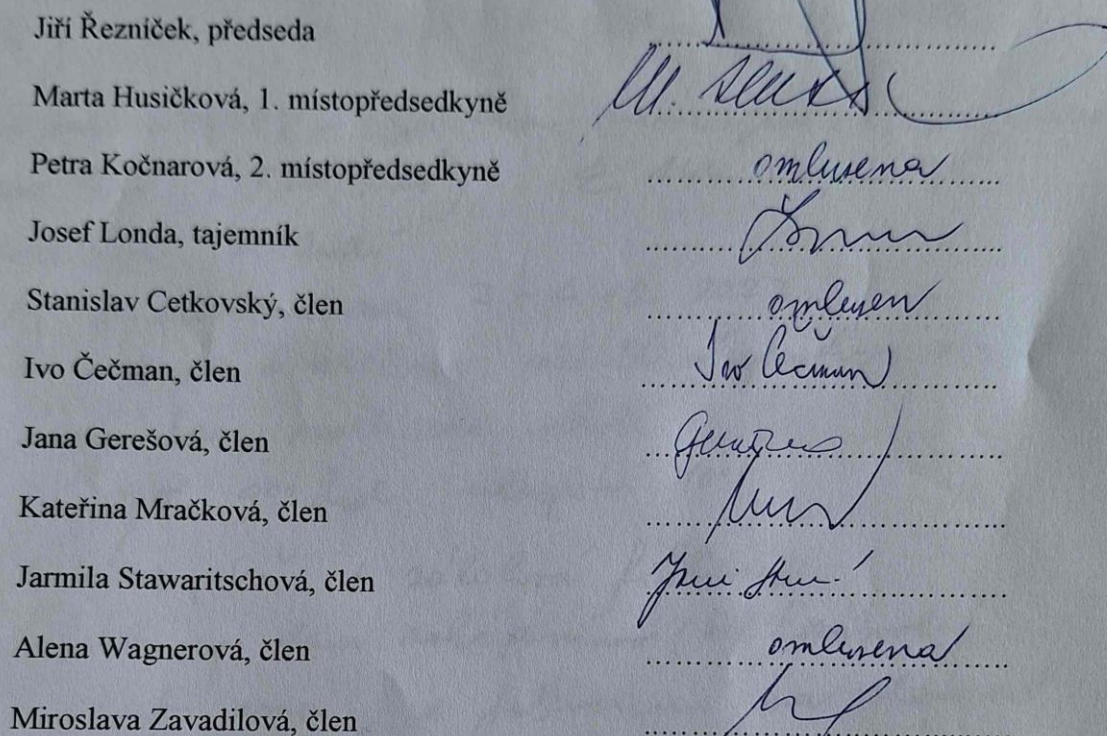 Jiří Řezníček, předseda
Marta Husičková, 1. místopředsedkyně
Petra Kočnarová, 2. místopředsedkyně omluvena
Josef Londa, tajemník
Stanislav Cetkovský, člen omluven
Ivo Čečman, člen Ivo Čečman
Jana Gerešová, člen
Kateřina Mračková, člen
Jarmila Stawaritschová, člen
Alena Wagnerová, člen omluvena
Miroslava Zavadilová, člen